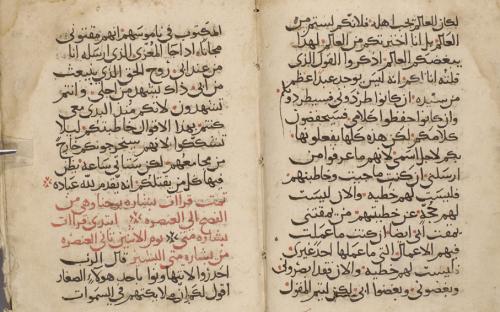 لكان العالم يحب اهله فلانكم لستم من
العالم بل انا اخترتكم من العالم لهذا
يبغضكم العالم اذكروا القول الذى
قلته انا لكم انه ليس يوجد عبد اعظم
من سيده ان كانوا طردونى فسيطردونكم
وان كانوا حفظوا كلامى فسيحفظون
كلامكم لكن هذه كلها يفعلونها
بكم لاجل اسمى لانهم ما عرفوا من
ارسلنى كنت ما جيت وخاطبتهم
فليست لهم خطيه والان ليست
لهم حجه عن خطيتهم من يمقتنى
يمقت ابى ايضا كنت ما عملت
فيهم الاعمال التى ما عملها احد غيرى
ليست لهم خطيه والان فقد بصرونى
وبغضونى وبغضوا ابى لكن ليتم القول
المكتوب فى ناموسهم انهم مقتونى
مجانا اذا جا المعزى الذى ارسله انا
من عند ابى روح الحق الذى ينبعث
من ابى ذاك يشهد من اجلى وانتم
تشهدون لانكم منذ البدى معى
كنتم بهذا الاقوال خاطبتكم ليلا
تتشككوا لانهم سيخرجونكم خارج
من مجامعهم لكن ستاتى ساعه يظن
فيها كل من يقتلكم انه يقدم لله عباده
تمت قراات بشاره يوحنا وهى من
الفصح الى العنصره ابتدى قراات
بشاره متى يوم الاثنين ثانى العنصره
من بشاره متى البشير قال الرب
احذروا لا تتهاونوا باحد هولاى الصغار
اقول لكم ان ملايكتهم فى السموات